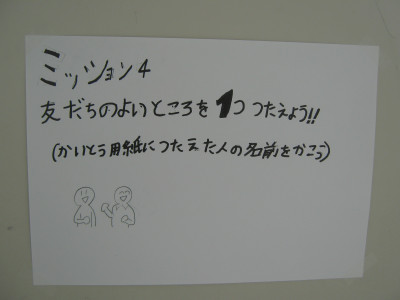 ミッション4
友だちのよいところを1つつたえよう!!
(かいとう用紙につたえた人の名前をかこう)